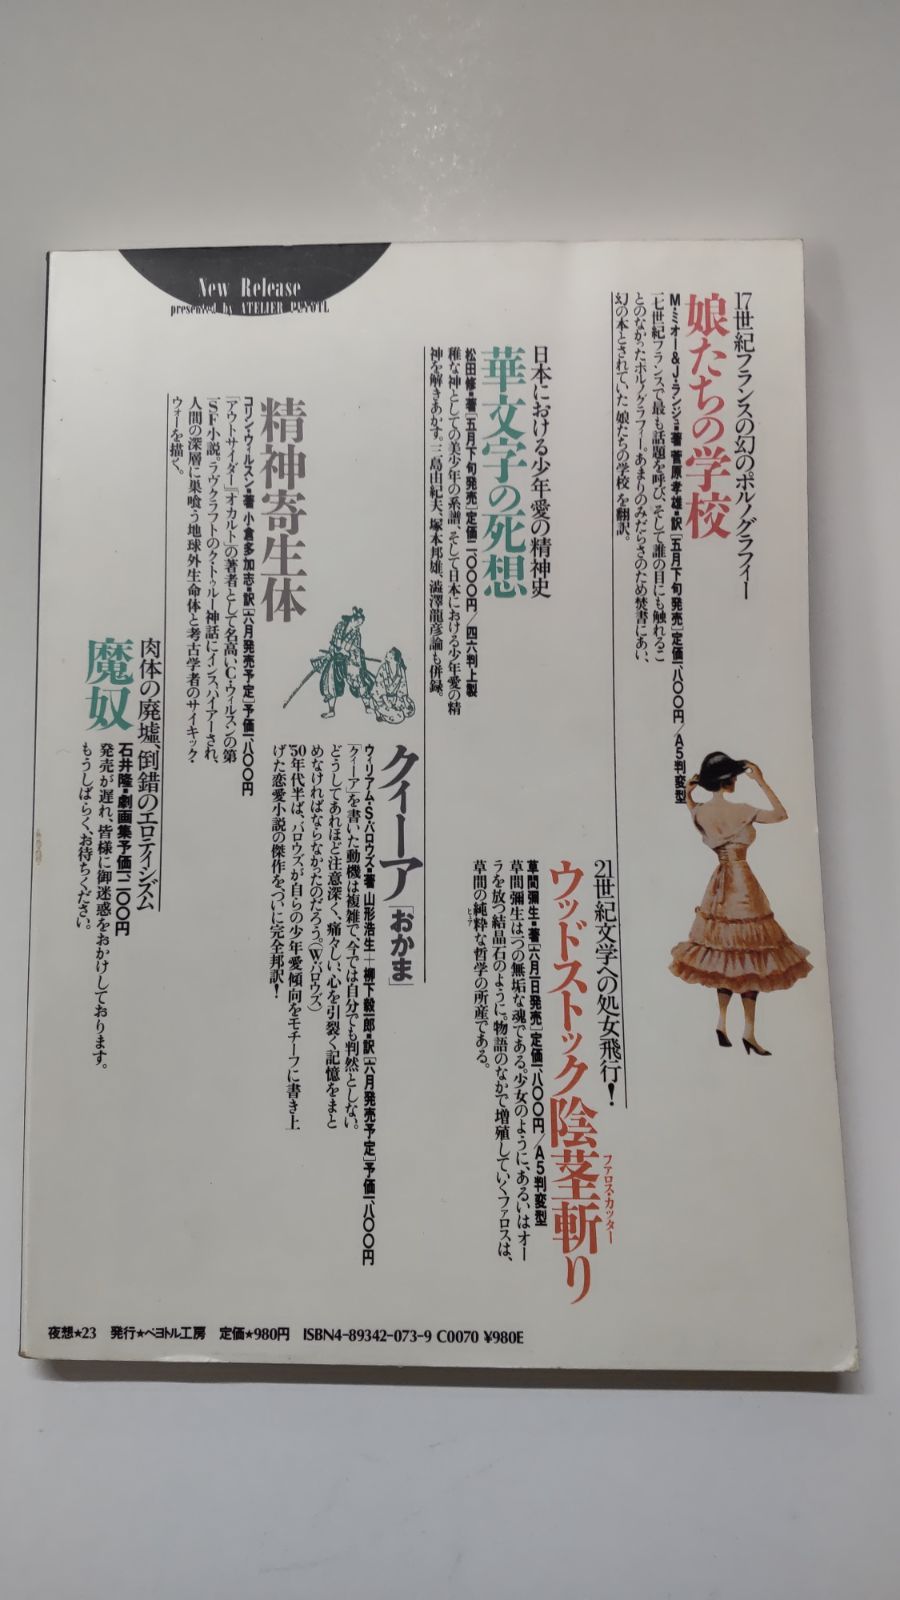 New Release
presented by ATELIER PEYOTL
17世紀フランスの幻のポルノグラフィー
娘たちの学校
M・ミオー&J・ランジュ=著 菅原孝雄=訳[五月下旬発売]定価一、八〇〇円/A5判変型
一七世紀フランスで最も話題を呼び、そして誰の目にも触れるこ
とのなかったポルノグラフィー。あまりのみだらさのため焚書にあい、
幻の本とされていた「娘たちの学校」を翻訳。
21世紀文学への処女飛行!
ウッドストック陰茎斬り
ファロス・カッター
草間彌生=著[六月一日発売]定価一、八〇〇円/A5判変型
草間彌生は一つの無垢な魂である。少女のように、あるいはオー
ラを放つ結晶石のように。物語のなかで増殖していくファロスは、
草間の純粋な哲学の所産である。
ピュア
日本における少年愛の精神史
華文字の死想
松田修=著[五月下旬発売]定価二、〇〇〇円/四六判上製
稚な神としての美少年の系譜、そして日本における少年愛の精
神を解きあかす。三島由紀夫、塚本邦雄、澁澤龍彦論も併録。
クィーア[おかま]
ウィリアム・S・バロウズ=著 山形浩生+柳下毅一郎=訳[六月発売予定]予価一、八〇〇円
「クィーア」を書いた動機は複雑で、今では自分でも判然としない。
どうしてあれほど注意深く、痛々しい、心を引裂く記憶をまと
めなければならなかったのだろう。(W・バロウズ)
'50年代半ば、バロウズが自らの少年愛傾向をモチーフに書き上
げた恋愛小説の傑作を、ついに完全邦訳!
精神寄生体
コリン・ウィルスン=著 小倉多加志=訳[六月発売予定]予価一、八〇〇円
「アウトサイダー」「オカルト」の著者として名高いC・ウィルスンの第
一SF小説。ラヴクラフトのク・トゥルー神話にインスパイアーされ、
人間の深層に巣喰う地球外生命体と考古学者のサイキック・
ウォーを描く。
肉体の廃墟、倒錯のエロティシズム
魔奴
石井隆=劇画集 予価一、二〇〇円
発売が遅れ、皆様に御迷惑をおかけしております。
もうしばらく、お待ちください。
夜想★23 発行★ペヨトル工房 定価★980円 ISBN4-89342-073-9 C0070 ¥980E